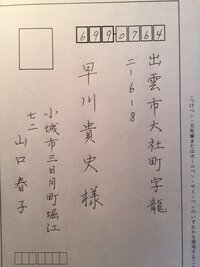 （つけペン・万年筆またはボールペン・サインペンのいずれかを使用するこ
6990764
出雲市大社町字龍
二-6-8
早川貴史様
小城市三日月町堀江
七二
山口春子